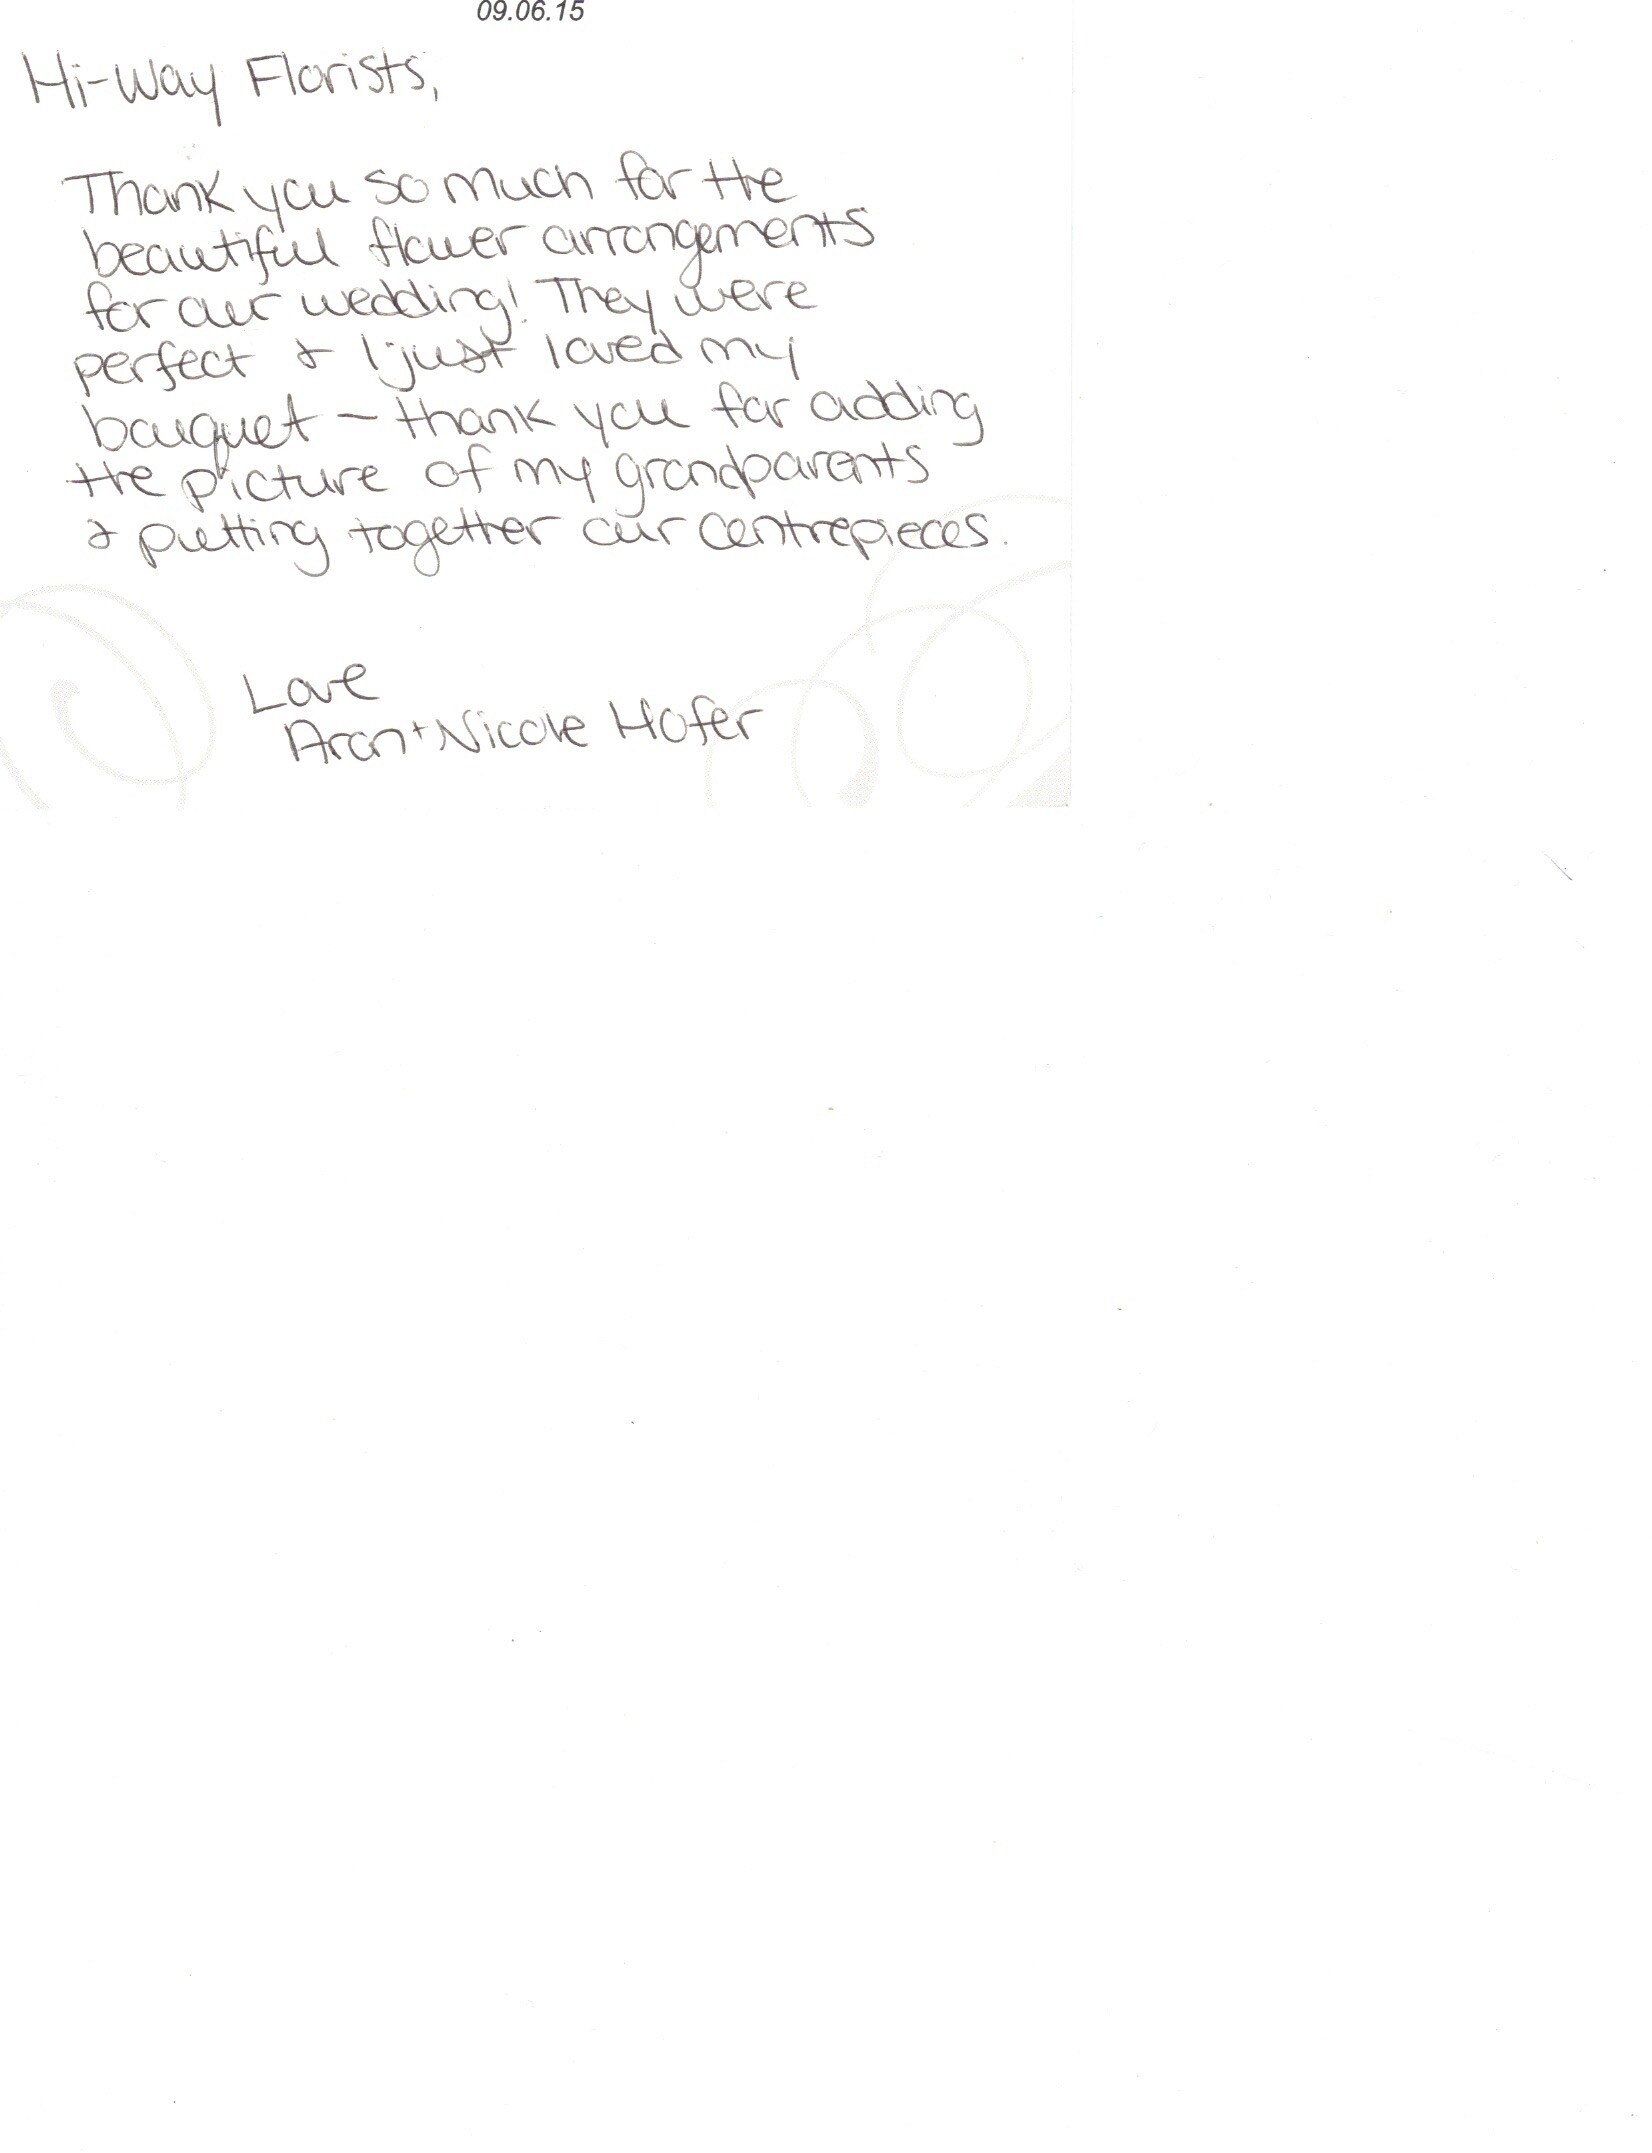 09.06.15
Hi-Way Florists,
Thank you so much for the
beautiful flower arrangements
for our wedding! They were
perfect & I just loved my
bouquet – thank you for adding
the picture of my grandparents
& putting together our centrepieces.
Love
Aron + Nicole Hofer